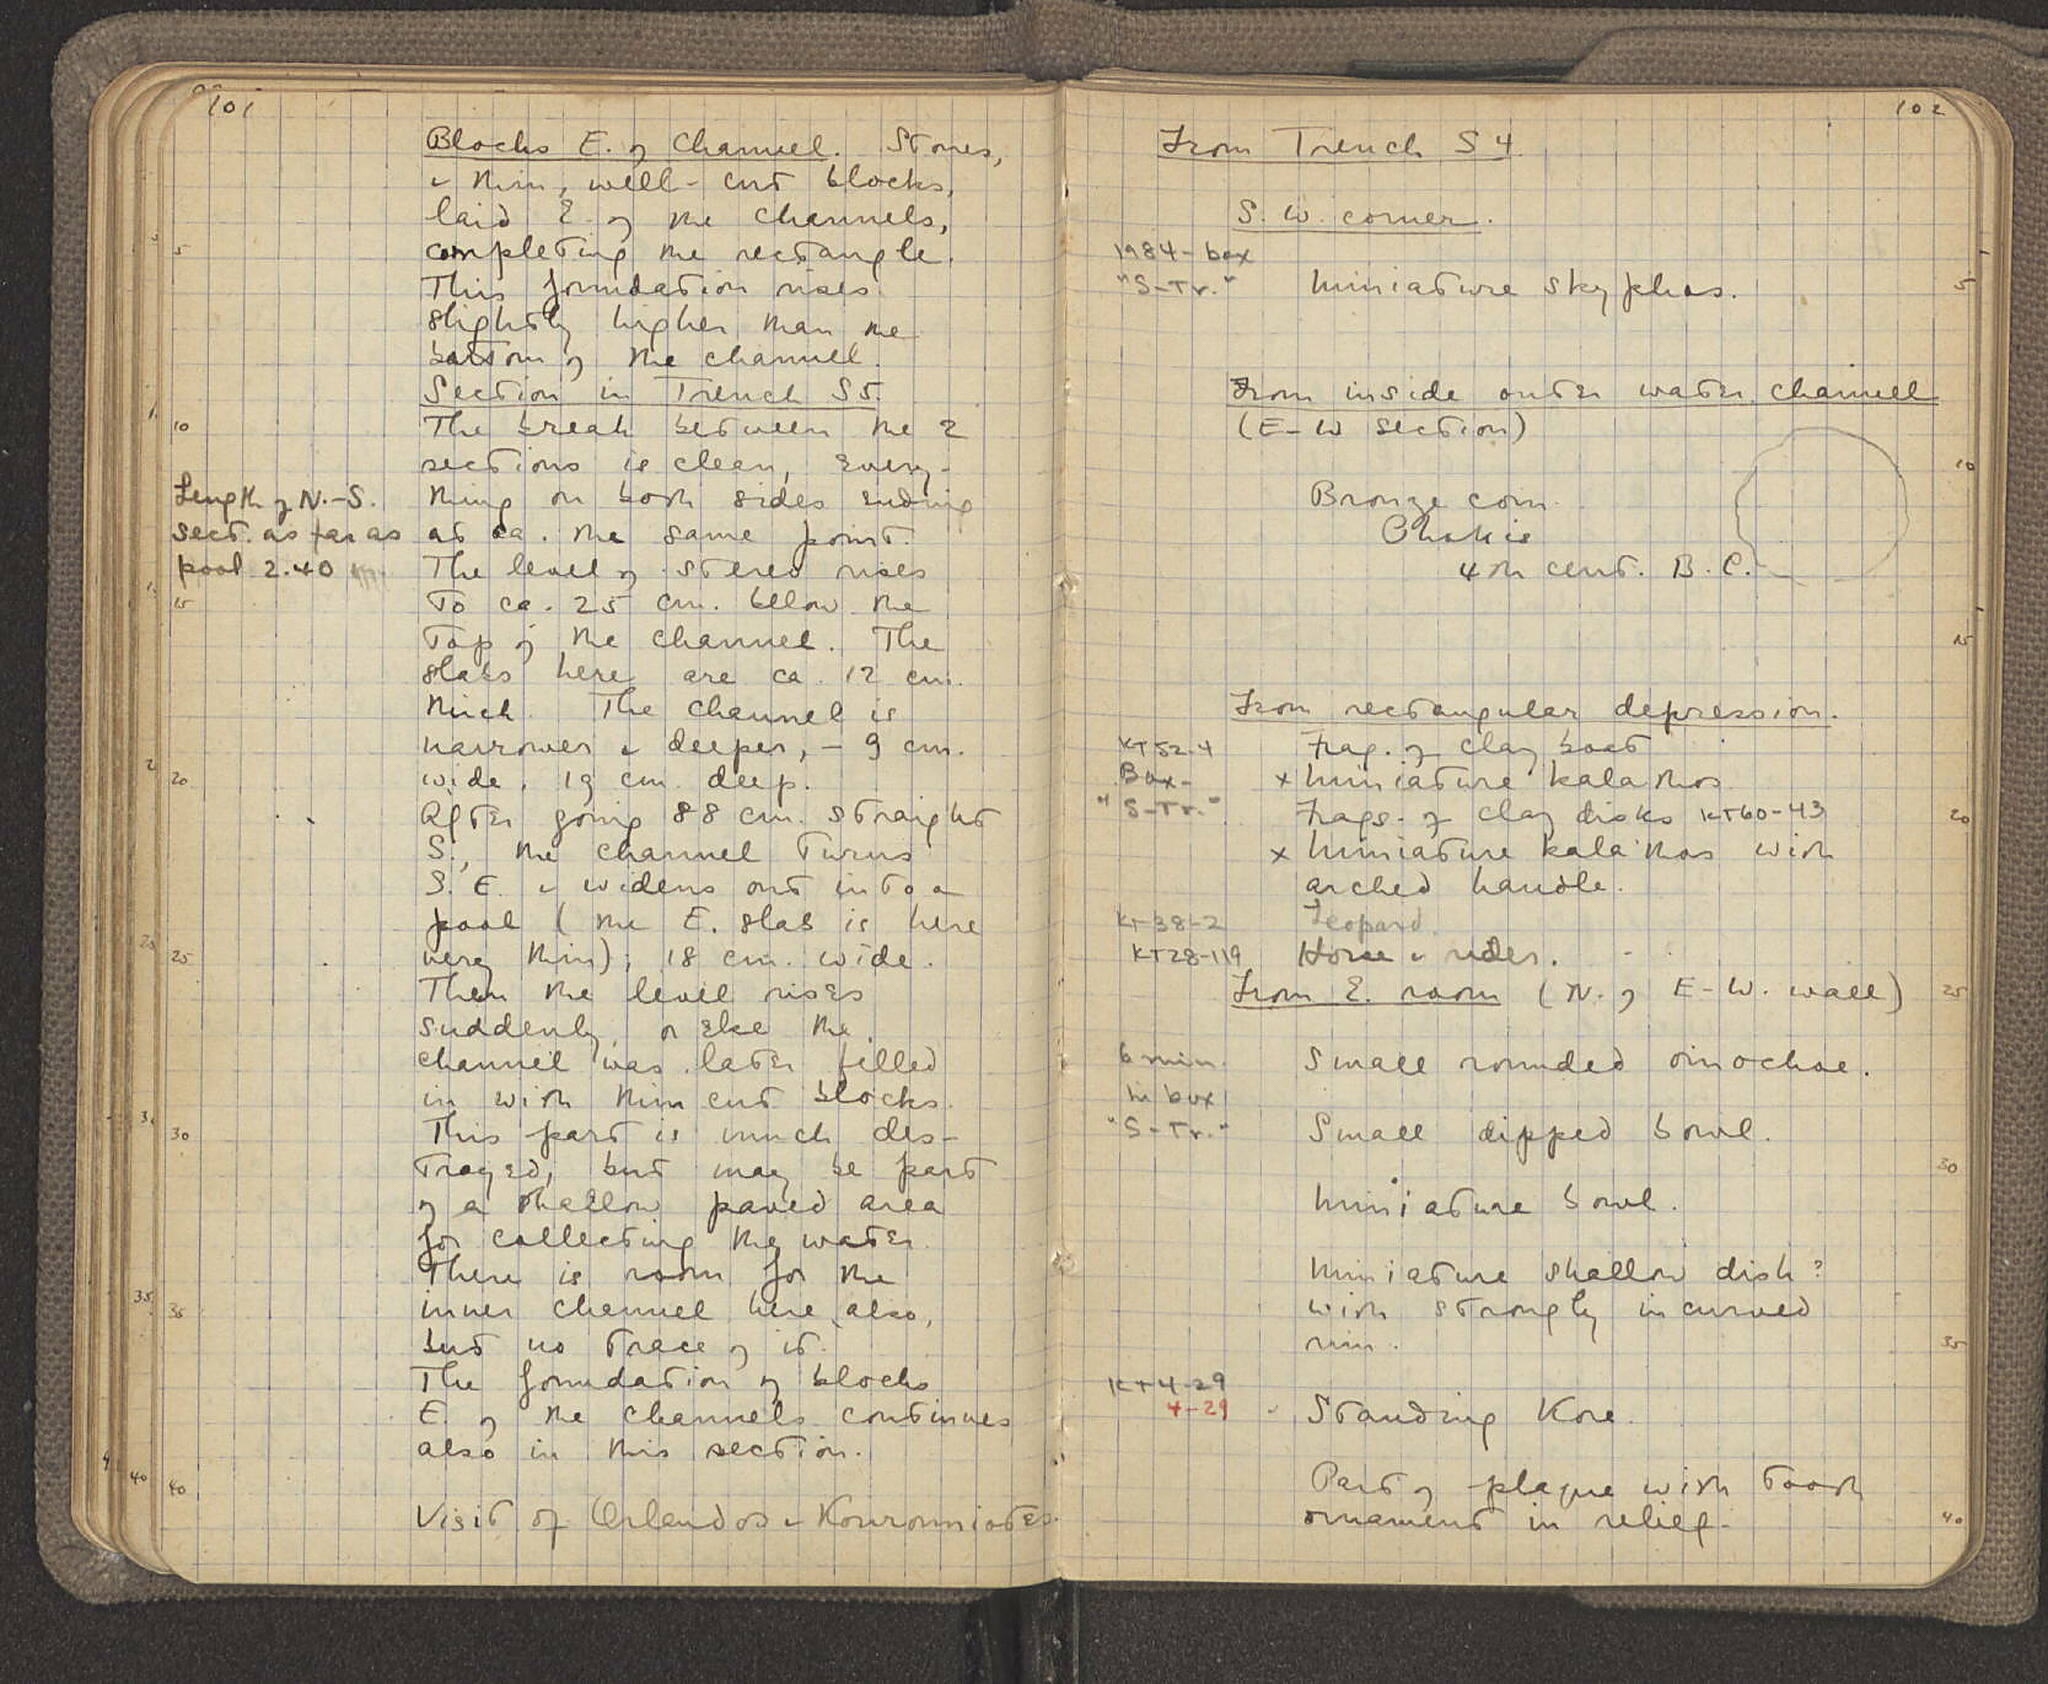 101
Blocks E. of Channel. Stones,
& thin, well-cut blocks,
laid E. of the channels,
5
completing the rectangle.
This foundation rises
slightly higher than the
bottom of the channel.
Section in Trench S5.
10
The break between the 2
sections is clean, every-
Length of N.-S.
thing on both sides ending
sect. as far as
at ca. the same point.
pool 2.40
The level of stereo rises
15
to ca. 25 cm. below the
top of the channel. The
slabs here are ca. 12 cm.
thick. The channel is
narrower & deeper, - 9 cm.
20
wide, 19 cm. deep.
After going 88 cm. straight
S., the channel turns
S.E. & widens out into a
pool (the E. slab is here
25
very thin), 18 cm. wide.
Then the level rises
suddenly, or else the
channel was later filled
in with thin cut blocks.
30
This part is much des-
troyed, but may be part
of a shallow paved area
for collecting the water.
There is room for the
35
inner channel here also,
but no trace of it.
The foundation of blocks
E. of the channels continues
also in this section.
40
Visit of Orlandos & Kourouniotes.
102
From Trench S4
S.W. corner.
1984 - box
"S-Tr."
Miniature skyphos.
5
From inside outer water channel
(E-W section)
10
Bronze coin.
Chalkis
4th cent. B.C.
15
From rectangular depression.
KT52-4
Frag. of clay boat
Box-
x Miniature kalathos
"S-Tr."
Frags. of clay disks KT60-43
20
x Miniature kalathos with
arched handle.
KT38-2
Leopard.
KT28-119
Horse & rider.
From E. room (N. of E-W. wall)
25
6 min.
Small rounded oinochoe.
in box
"S-Tr."
Small dipped bowl.
30
Miniature bowl.
Miniature shallow dish?
with strongly incurved
rim.
35
KT4-29
4-29
Standing Kore.
Part of plaque with tooth
ornament in relief.
40